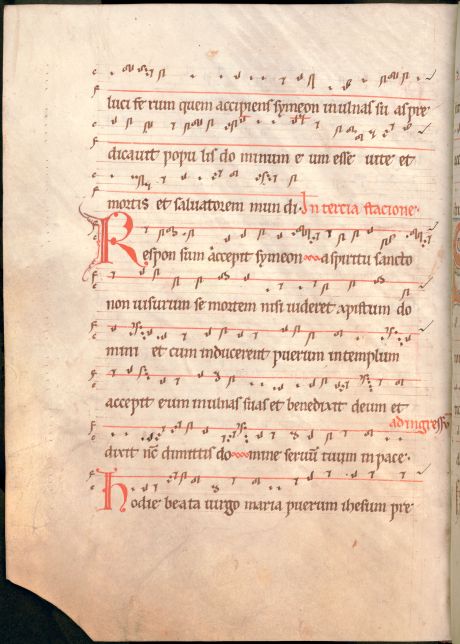 luci fe rum quem accipiens symeon inulnas su as pre
dicauit popu lis do minum e um esse uite et
mortis et saluatorem mun di. In tercia stacione.
Respon sum accepit symeon a spiritu sancto
non uisurum se mortem nisi uideret xpistum do
mini et cum inducerent puerum intemplum
accepit eum inulnas suas et benedixit deum et
ad ingressū
dixit nc̄ dimittis do mine seruū tuum in pace.
Hodie beata uirgo maria puerum ihesum pre